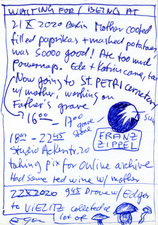 WAITING FOR / BEING AT
21 X 2020 Berlin Mother cooked
filled paprikas + mashed potatoes
was soooo good! Ate too much
Powernap. Tele + Katrin came, tea
Now going to ST. PETRI cemetery
w/ mother, working on
Father's grave
16 00 — 17 00
FRANZ
ZIPPEL
18 00 — 22 45
Studio Ackerstr. 20
taking pix for online archive
Had some red wine w/ mother
22 X 2020 9 45 Drove w/ Edgar
to UELITZ collected a
lot of